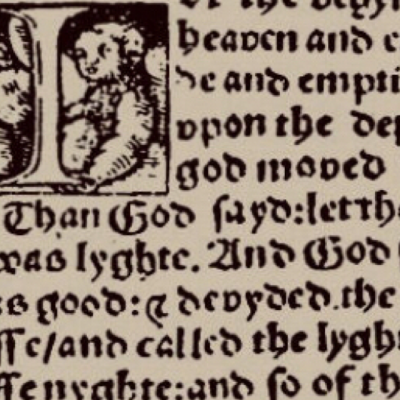 I
the begyn
heaven and e
de and empti
vpon the dep
god moved
Than God sayd: let th
was lyghte. And God
s good: & devyded the
sse/and called the lygh
sse nyghte: and so of th